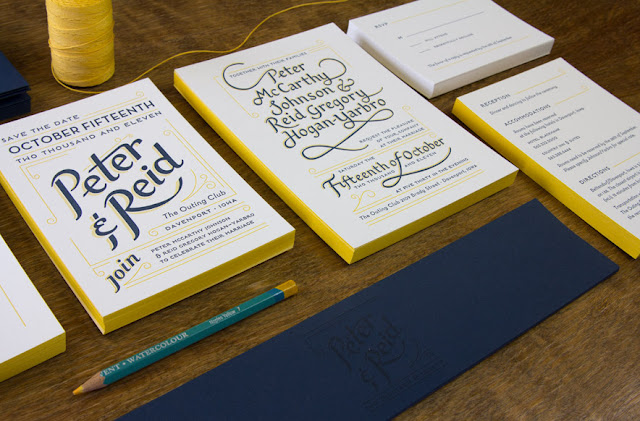 SAVE THE DATE
OCTOBER FIFTEENTH
TWO THOUSAND AND ELEVEN
Peter
& Reid
The Outing Club
DAVENPORT · IOWA
join
PETER MCCARTHY JOHNSON
& REID GREGORY HOGAN-YARBRO
TO CELEBRATE THEIR MARRIAGE
TOGETHER WITH THEIR FAMILIES
Peter
McCarthy
Johnson &
Reid Gregory
Hogan-Yarbro
REQUEST THE PLEASURE
OF YOUR COMPANY
AT THEIR MARRIAGE
SATURDAY THE
Fifteenth of October
TWO THOUSAND AND ELEVEN
AT FIVE THIRTY IN THE EVENING
The Outing Club 2109 Brady Street, Davenport, Iowa
RSVP
RECEPTION
Dinner and dancing to follow the ceremony
ACCOMMODATIONS
DIRECTIONS
ENT • WATERCOLOUR
Peter
& Reid